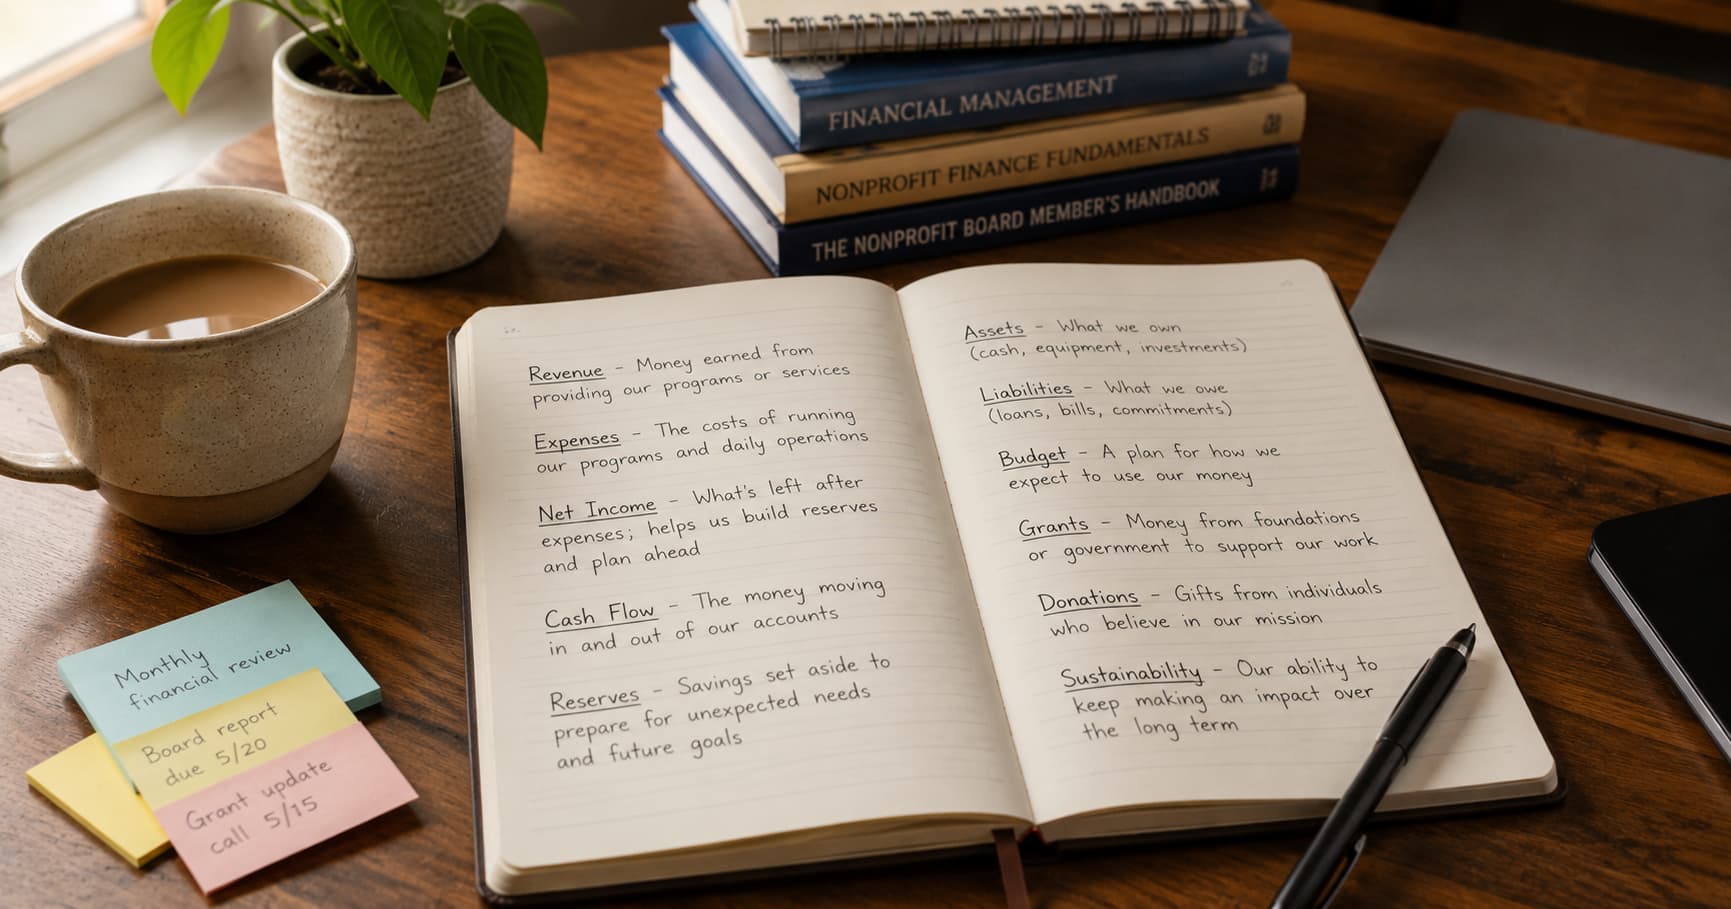 FINANCIAL MANAGEMENT
NONPROFIT FINANCE FUNDAMENTALS
THE NONPROFIT BOARD MEMBER'S HANDBOOK
Revenue - Money earned from
providing our programs or services
Expenses - The costs of running
our programs and daily operations
Net Income - What's left after
expenses; helps us build reserves
and plan ahead
Cash Flow - The money moving
in and out of our accounts
Reserves - Savings set aside to
prepare for unexpected needs
and future goals
Assets - What we own
(cash, equipment, investments)
Liabilities - What we owe
(loans, bills, commitments)
Budget - A plan for how we
expect to use our money
Grants - Money from foundations
or government to support our work
Donations - Gifts from individuals
who believe in our mission
Sustainability - Our ability to
keep making an impact over
the long term
Monthly
financial review
Board report
due 5/20
Grant update
call 5/15